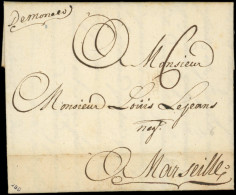 De monaco
A Monsieur
Monsieur Loüis Lejeans
neg.t
A Marseille